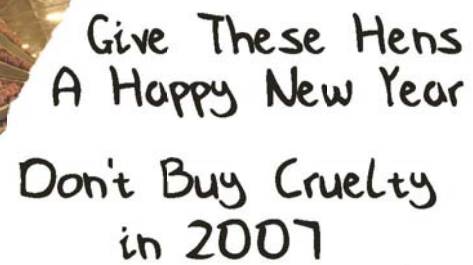 Give These Hens
A Happy New Year
Don't Buy Cruelty
in 2007